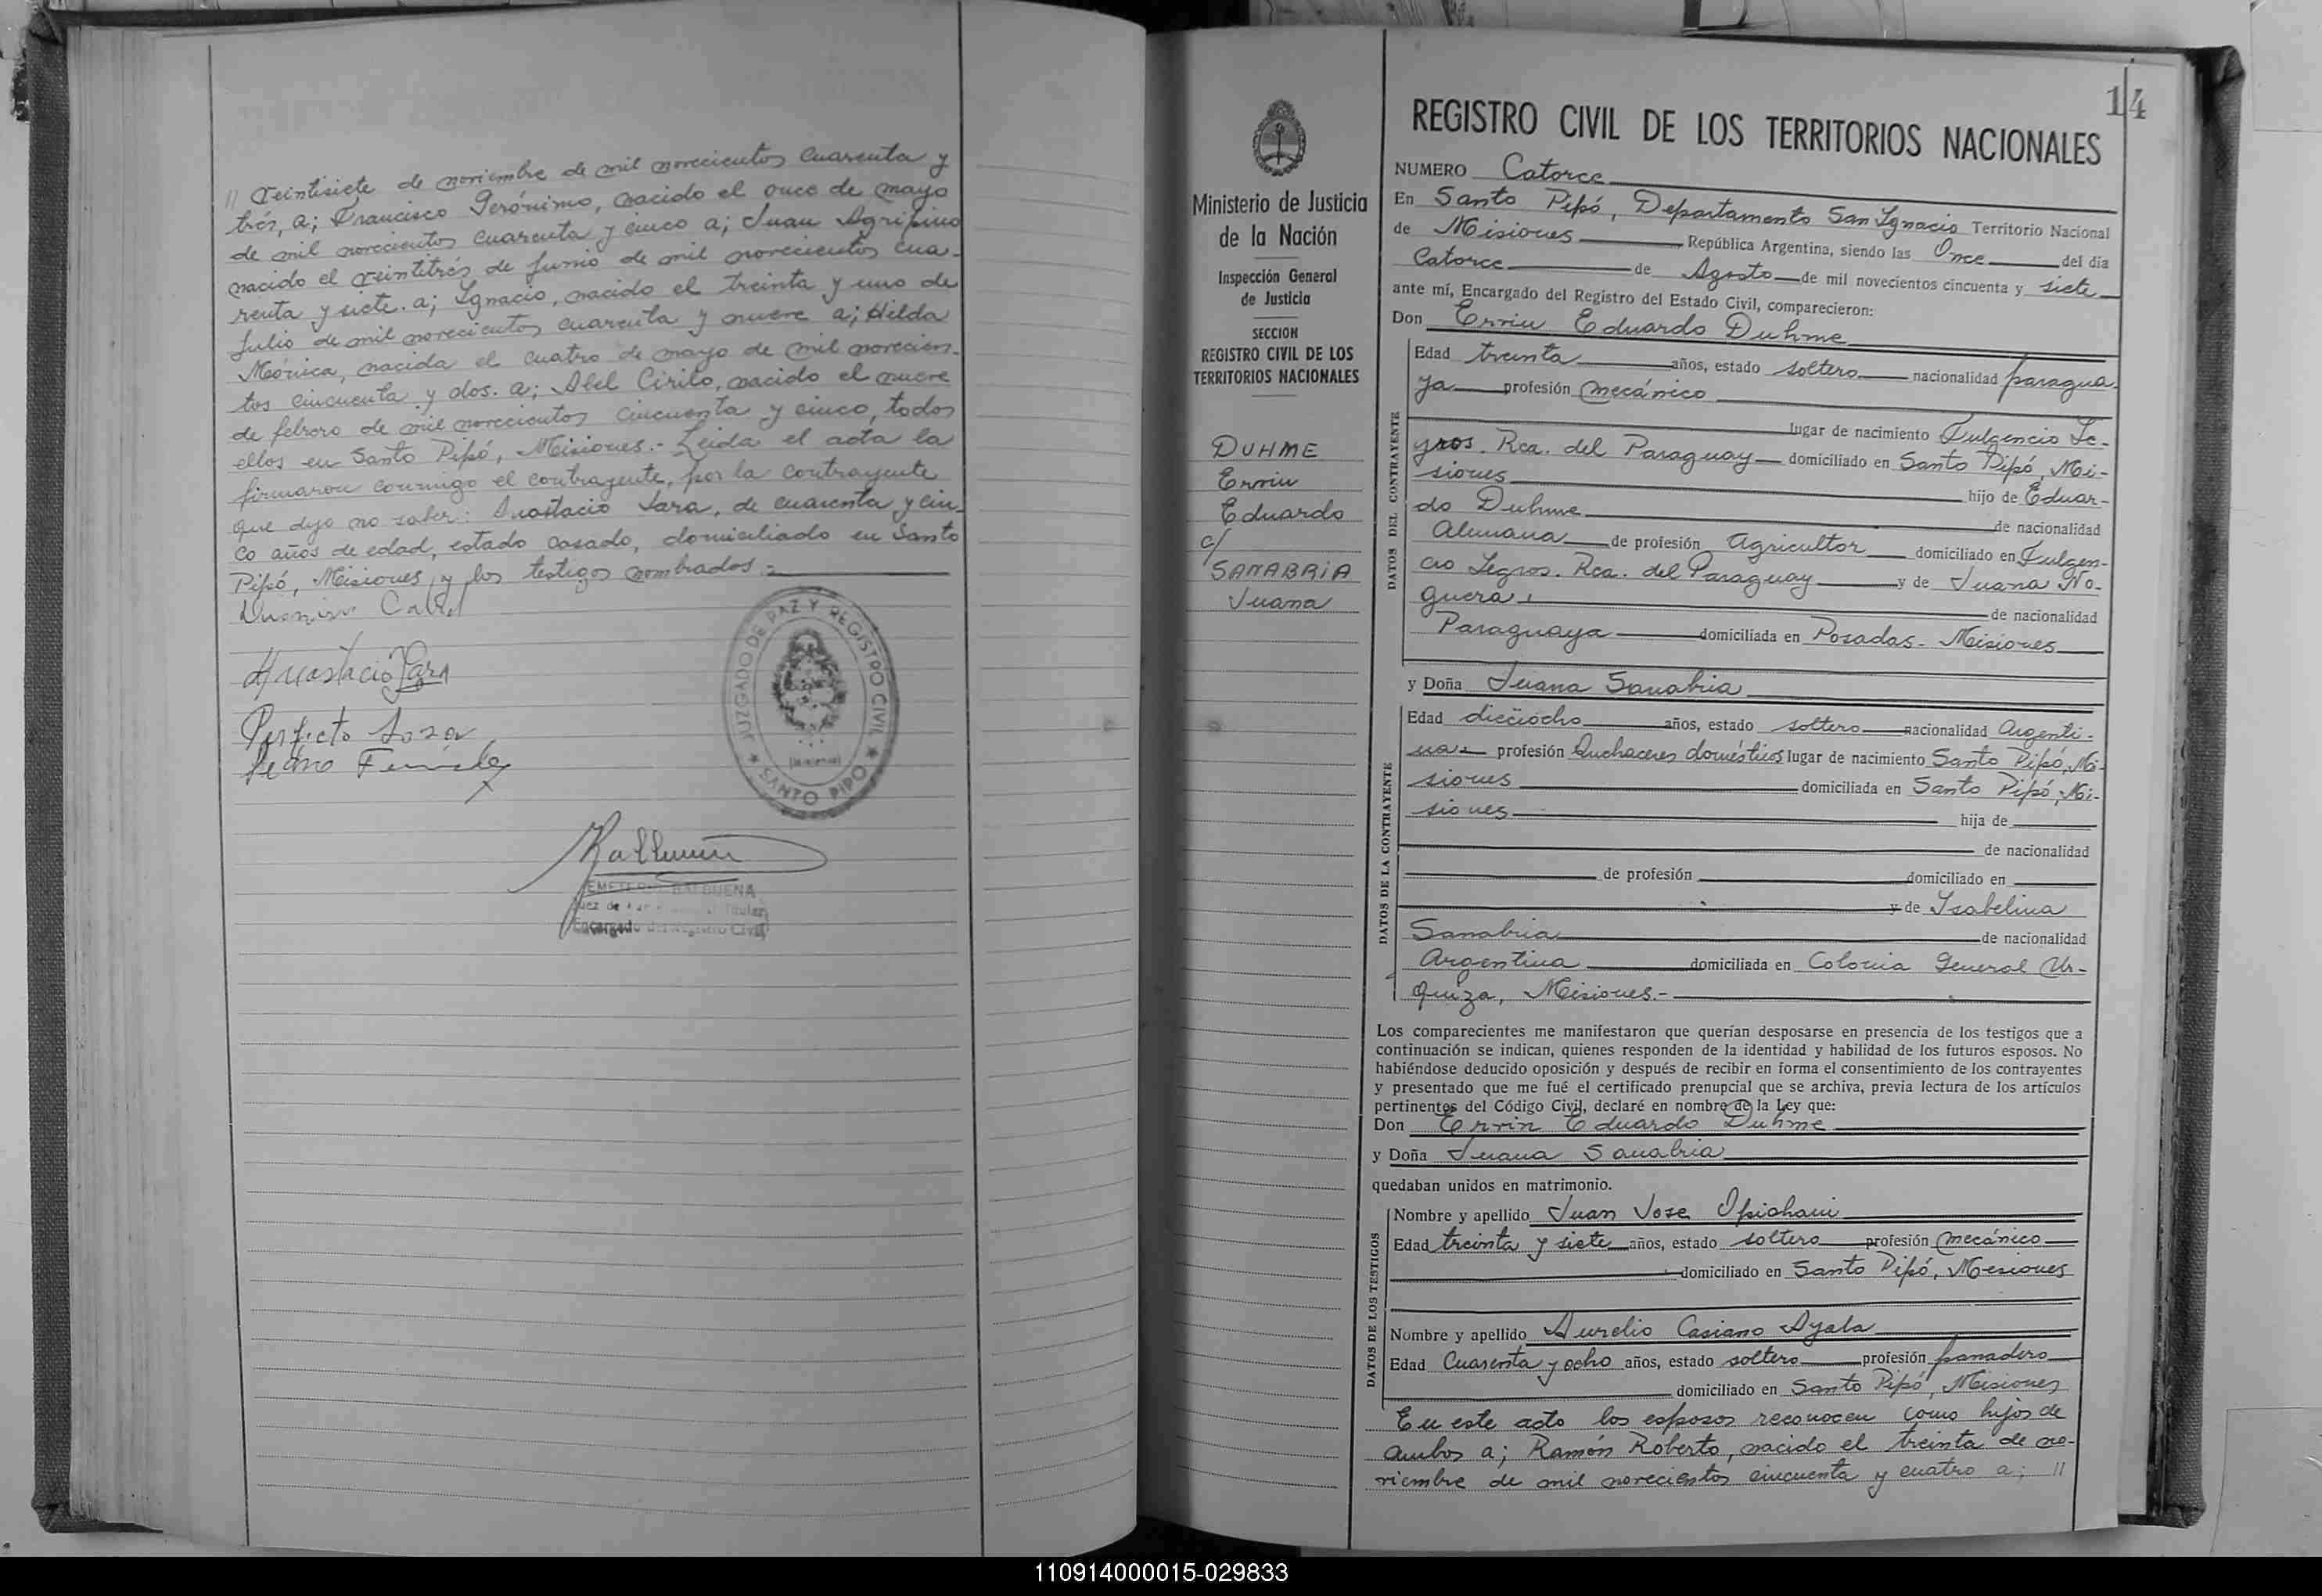 // veintisiete de noviembre de mil novecientos cuarenta y
trés, a; Francisco Gerónimo, nacido el once de mayo
de mil novecientos cuarenta y cinco a; Juan Agripino
nacido el veintitrés de Junio de mil novecientos cua-
renta y siete. a; Ignacio, nacido el treinta y uno de
Julio de mil novecientos cuarenta y nueve a; Hilda
Mónica, nacida el cuatro de mayo de mil novecien-
tos cincuenta y dos. a; Abel Cirilo, nacido el nueve
de febrero de mil novecientos cincuenta y cinco, todos
ellos en Santo Pipó, Misiones.- Leida el acta la
firmaron conmigo el contrayente, por la contrayente
que dijo no saber: Anastacio Jara, de cuarenta y cin-
co años de edad, estado casado, domiciliado en Santo
Pipó, Misiones, y los testigos nombrados.=
Anastacio Jara
Perfecto Sosa
JUZGADO DE PAZ Y REGISTRO CIVIL
★ SANTO PIPO ★
(Misiones)
BALBUENA
Juez de Titular
Encargado del Registro Civil
14
Ministerio de Justicia
de la Nación
Inspección General
de Justicia
SECCION
REGISTRO CIVIL DE LOS
TERRITORIOS NACIONALES
DUHME
Ervin
Eduardo
c/
SANABRIA
Juana
REGISTRO CIVIL DE LOS TERRITORIOS NACIONALES
NUMERO Catorce
En Santo Pipó, Departamento San Ignacio Territorio Nacional
de Misiones República Argentina, siendo las Once del día
Catorce de Agosto de mil novecientos cincuenta y siete
ante mí, Encargado del Registro del Estado Civil, comparecieron:
Don Ervin Eduardo Duhme
DATOS DEL CONTRAYENTE
Edad treinta años, estado soltero nacionalidad paragua-
ya profesión mecánico
lugar de nacimiento Fulgencio Ye-
gros. Rca. del Paraguay domiciliado en Santo Pipó, Mi-
siones hijo de Eduar-
do Duhme de nacionalidad
Alemana de profesión Agricultor domiciliado en Fulgen-
cio Yegros. Rca. del Paraguay y de Juana No-
guera, de nacionalidad
Paraguaya domiciliada en Posadas - Misiones
y Doña Juana Sanabria
DATOS DE LA CONTRAYENTE
Edad dieciocho años, estado soltero nacionalidad Argenti-
na.- profesión Quehaceres domésticos lugar de nacimiento Santo Pipó, Mi-
siones domiciliada en Santo Pipó, Mi-
siones hija de
de nacionalidad
de profesión domiciliado en
y de Isabelina
Sanabria de nacionalidad
Argentina domiciliada en Colonia General Ur-
quiza, Misiones.-
Los comparecientes me manifestaron que querían desposarse en presencia de los testigos que a
continuación se indican, quienes responden de la identidad y habilidad de los futuros esposos. No
habiéndose deducido oposición y después de recibir en forma el consentimiento de los contrayentes
y presentado que me fué el certificado prenupcial que se archiva, previa lectura de los artículos
pertinentes del Código Civil, declaré en nombre de la Ley que:
Don Ervin Eduardo Duhme
y Doña Juana Sanabria
quedaban unidos en matrimonio.
DATOS DE LOS TESTIGOS
Nombre y apellido Juan Jose
Edad treinta y siete años, estado soltero profesión mecánico
domiciliado en Santo Pipó, Misiones
Nombre y apellido Aurelio Casiano Ayala
Edad Cuarenta y ocho años, estado soltero profesión panadero
domiciliado en Santo Pipó, Misiones
En este acto los esposos reconocen como hijos de
ambos a; Ramón Roberto, nacido el treinta de no-
viembre de mil novecientos cincuenta y cuatro a; //
110914000015-029833